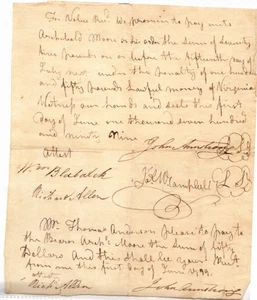 For Value Recd. we promise to pay unto
Archabald Moore or his order the Sum of Seventy
five pounds on or before the fifteenth day of
July next under the penalty of one hundred
and fifty pounds Lawful money of Virginia
Witness our hands and seals this first
Day of June one thousand seven hundred
and ninety Nine
John Armstrong
Attest
Wm
Richard Allen
Campbell
Mr. Thomas Anderson please to pay to
the Bearer Arch'd Moore the Sum of fifty
Dollars and this shall be your
from me this first Day of June 1799
Attest
Rich Allen
John Armstrong